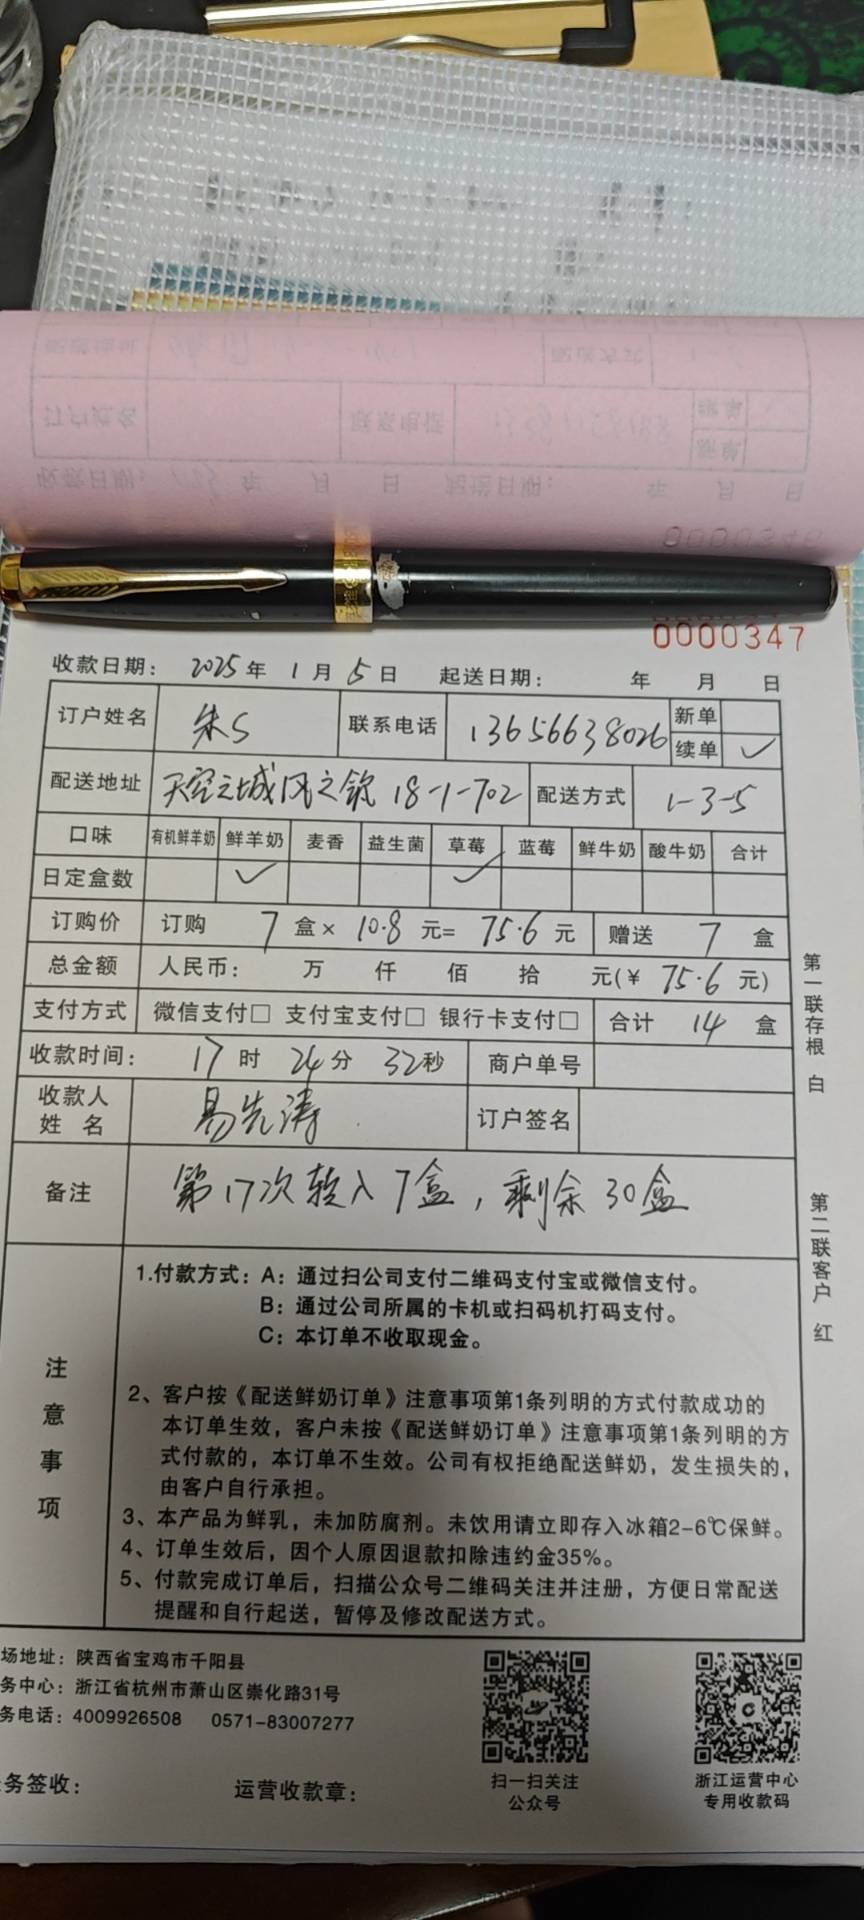 0000346
0000347
收款日期： 2025 年 1 月 5 日 起送日期： 年 月 日
订户姓名 朱S 联系电话 13656638026 新单
续单 ✓
配送地址 天空之城风之 18-1-702 配送方式 1-3-5
口味 有机鲜羊奶 鲜羊奶 麦香 益生菌 草莓 蓝莓 鲜牛奶 酸牛奶 合计
日定盒数 ✓ ✓
订购价 订购 7 盒× 10.8 元= 75.6 元 赠送 7 盒
总金额 人民币： 万 仟 佰 拾 元(¥ 75.6 元)
支付方式 微信支付□ 支付宝支付□ 银行卡支付□ 合计 14 盒
收款时间： 17 时 24 分 32 秒 商户单号
收款人
姓 名 易先涛 订户签名
备注 第17次转入7盒，剩余30盒
注意事项
1.付款方式：A：通过扫公司支付二维码支付宝或微信支付。
B：通过公司所属的卡机或扫码机打码支付。
C：本订单不收取现金。
2、客户按《配送鲜奶订单》注意事项第1条列明的方式付款成功的
本订单生效，客户未按《配送鲜奶订单》注意事项第1条列明的方
式付款的，本订单不生效。公司有权拒绝配送鲜奶，发生损失的，
由客户自行承担。
3、本产品为鲜乳，未加防腐剂。未饮用请立即存入冰箱2-6℃保鲜。
4、订单生效后，因个人原因退款扣除违约金35%。
5、付款完成订单后，扫描公众号二维码关注并注册，方便日常配送
提醒和自行起送，暂停及修改配送方式。
第一联存根 白
第二联客户 红
场地址：陕西省宝鸡市千阳县
务中心：浙江省杭州市萧山区崇化路31号
务电话：4009926508 0571-83007277
务签收： 运营收款章：
扫一扫关注
公众号
浙江运营中心
专用收款码